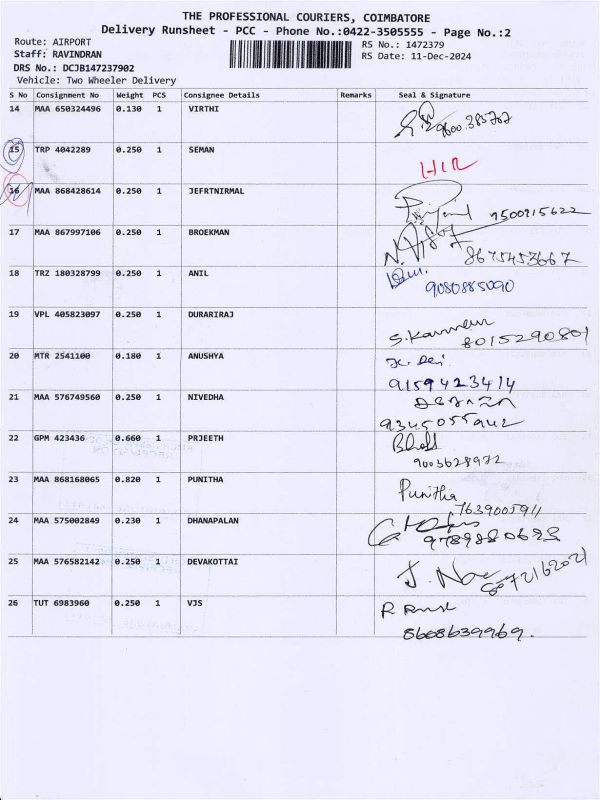 THE PROFESSIONAL COURIERS, COIMBATORE
Delivery Runsheet - PCC - Phone No.:0422-3505555 - Page No.:2
Route: AIRPORT
Staff: RAVINDRAN
DRS No.: DCJB147237902
Vehicle: Two Wheeler Delivery
RS No.: 1472379
RS Date: 11-Dec-2024
S No Consignment No Weight PCS Consignee Details Remarks Seal & Signature
14 MAA 650324496 0.130 1 VIRTHI
15 TRP 4042289 0.250 1 SEMAN
16 MAA 868428614 0.250 1 JEFRTNIRMAL 9500915622
17 MAA 867997106 0.250 1 BROEKMAN 8675453667
18 TRZ 180328799 0.250 1 ANIL 9080885090
19 VPL 405823097 0.250 1 DURARIRAJ 8015290801
20 MTR 2541100 0.180 1 ANUSHYA 9159423414
21 MAA 576749560 0.250 1 NIVEDHA 9345055942
22 GPM 423436 0.660 1 PRJEETH 9003628972
23 MAA 868168065 0.820 1 PUNITHA Punitha 7639005911
24 MAA 575002849 0.230 1 DHANAPALAN
25 MAA 576582142 0.250 1 DEVAKOTTAI
26 TUT 6983960 0.250 1 VJS
8608639969.